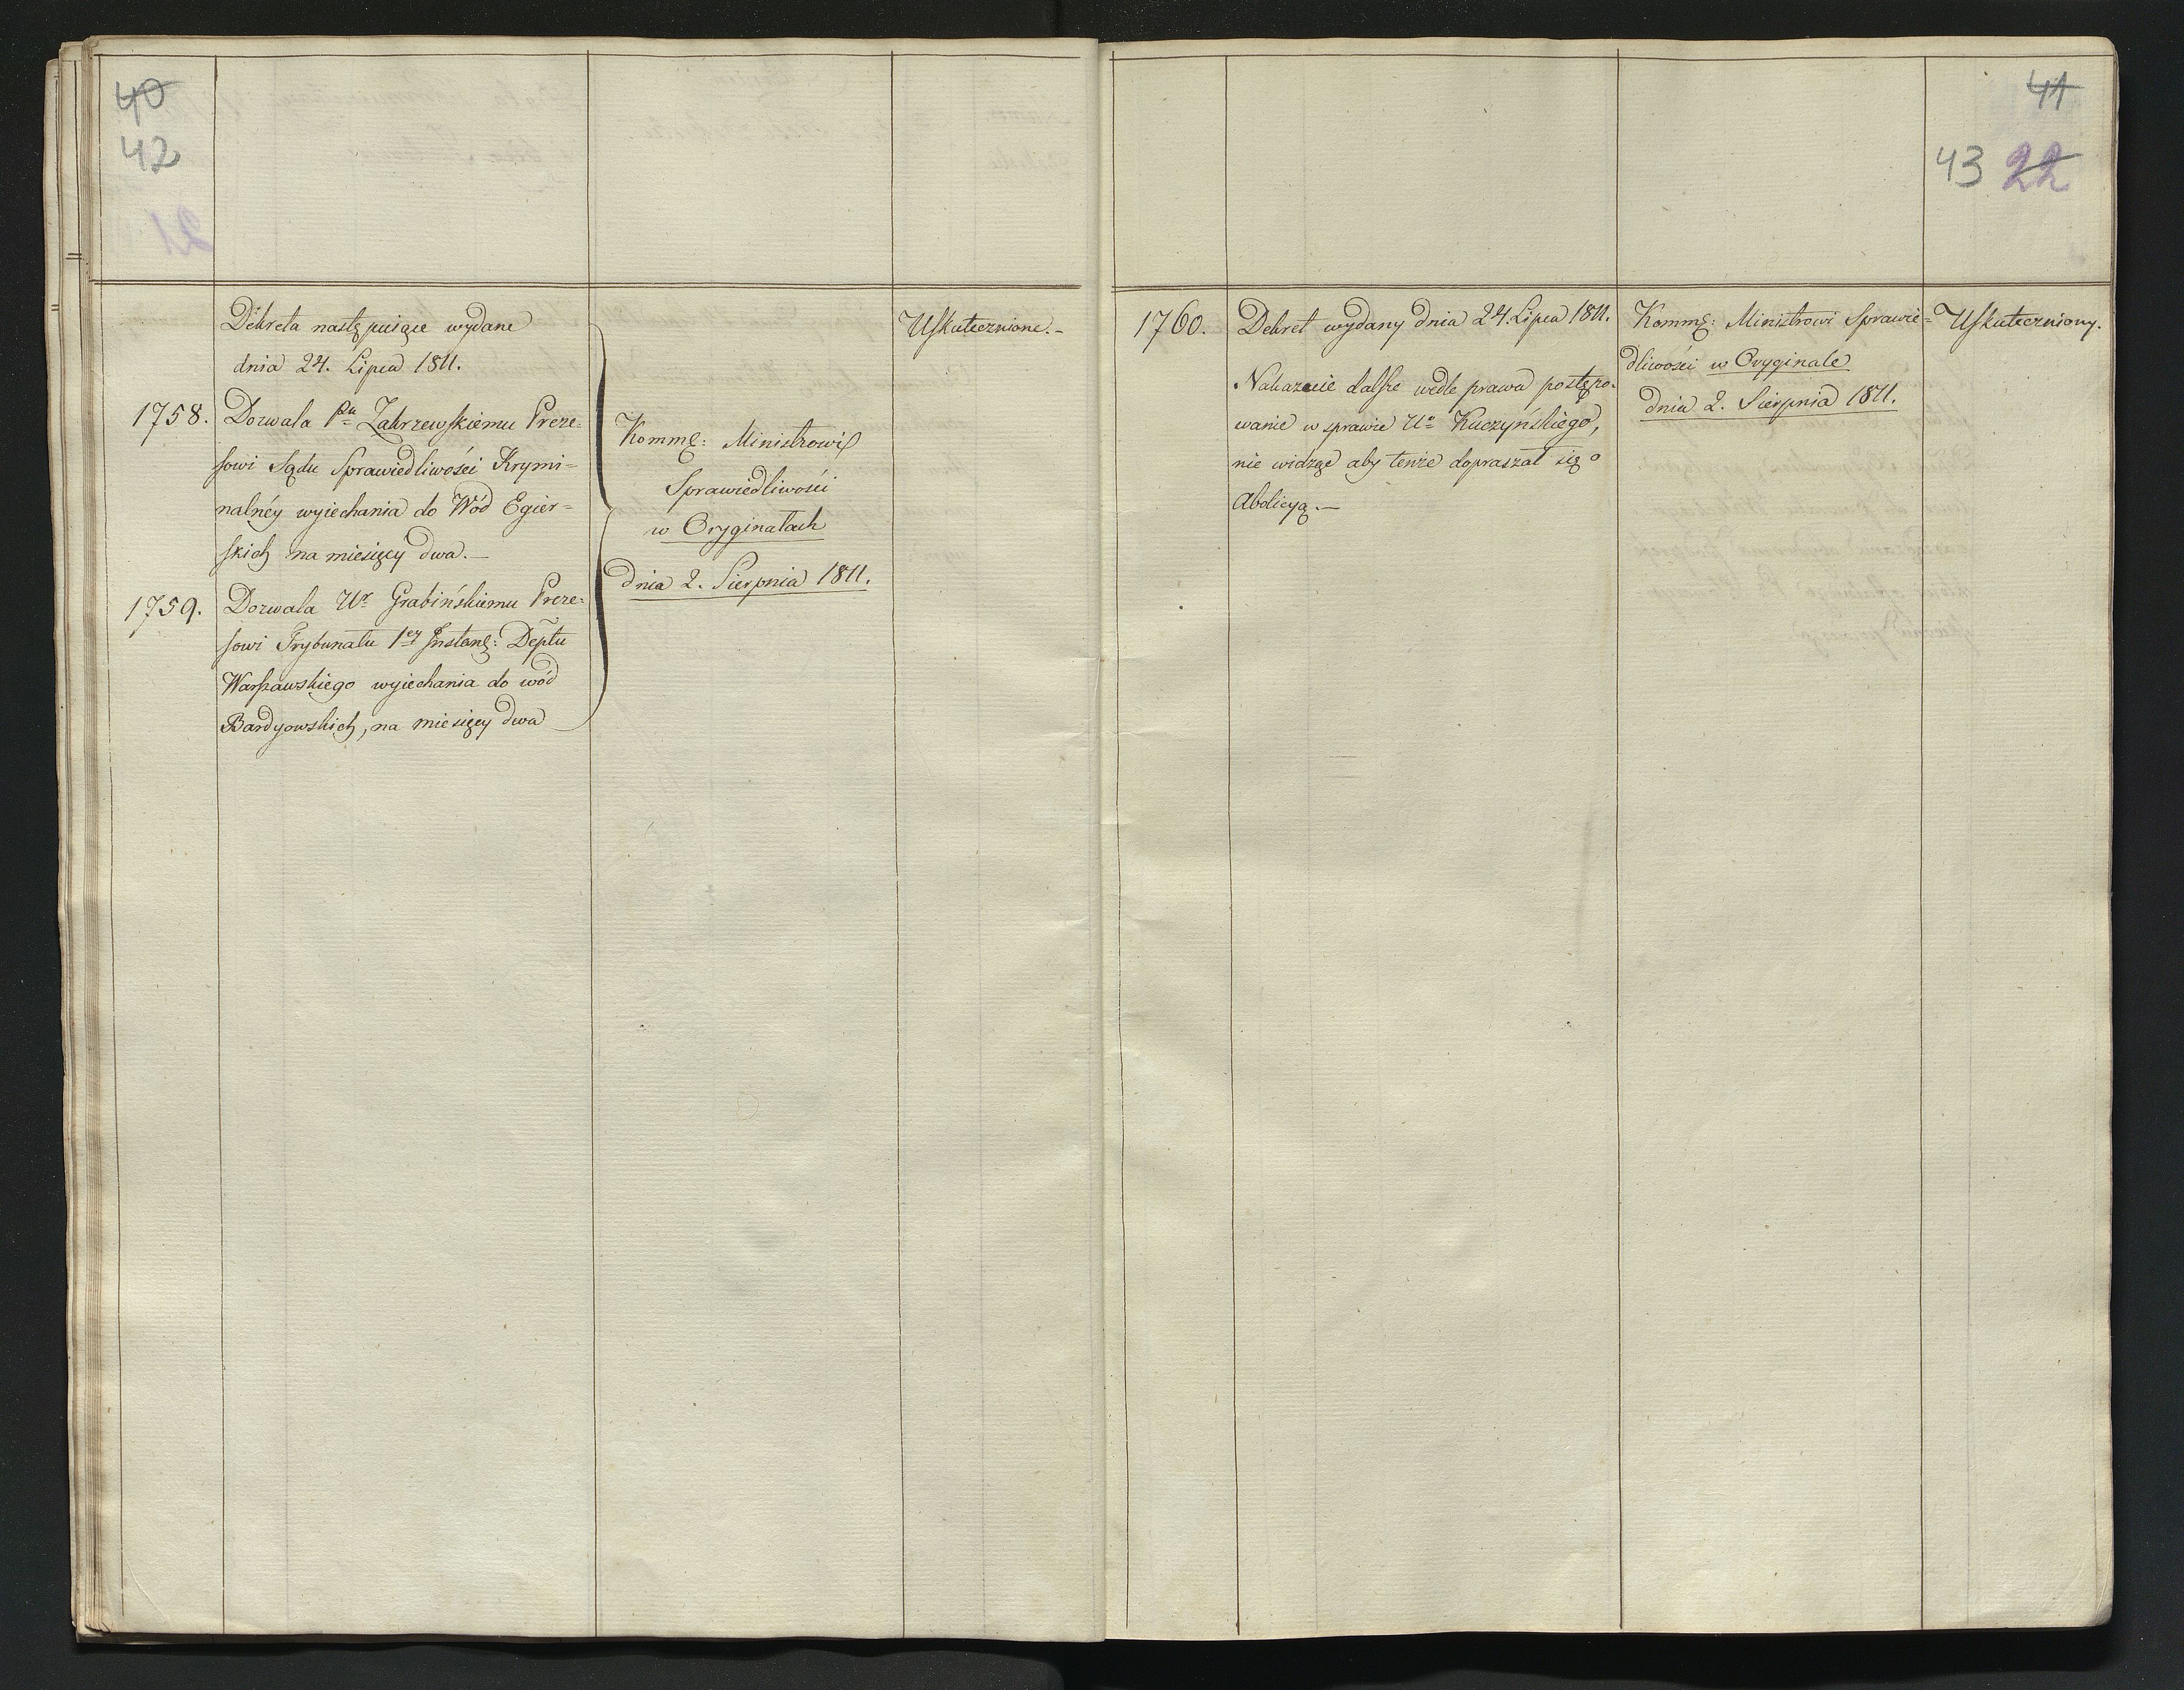 40
42
Dekreta następuiące wydane
dnia 24. Lipca 1811.
1758. Dozwala Pu Zakrzewskiemu Preze=
sowi Sądu Sprawiedliwości Krymi=
nalnéy wyiechania do Wód Egier=
skich na miesięcy dwa.—
1759. Dozwala Ur Grabińskiemu Preze=
sowi Trybunału 1ey Instanc: Deptu
Warszawskiego wyiechania do wód
Bardyowskich, na miesięcy dwa
Komm: Ministrowi
Sprawiedliwości
w Oryginałach
dnia 2. Sierpnia 1811.
Uskutecznione.-
41
43 22
1760. Dekret wydany dnia 24. Lipca 1811.
Nakazuie dalsze wedle prawa postępo-
wanie w sprawie Uo Kuczyńskiego,
nie widzęc aby tenże dopraszał się o
Abolicyą.—
Komm: Ministrowi Sprawie=
dliwości w Oryginale
dnia 2. Sierpnia 1811.
Uskuteczniony.